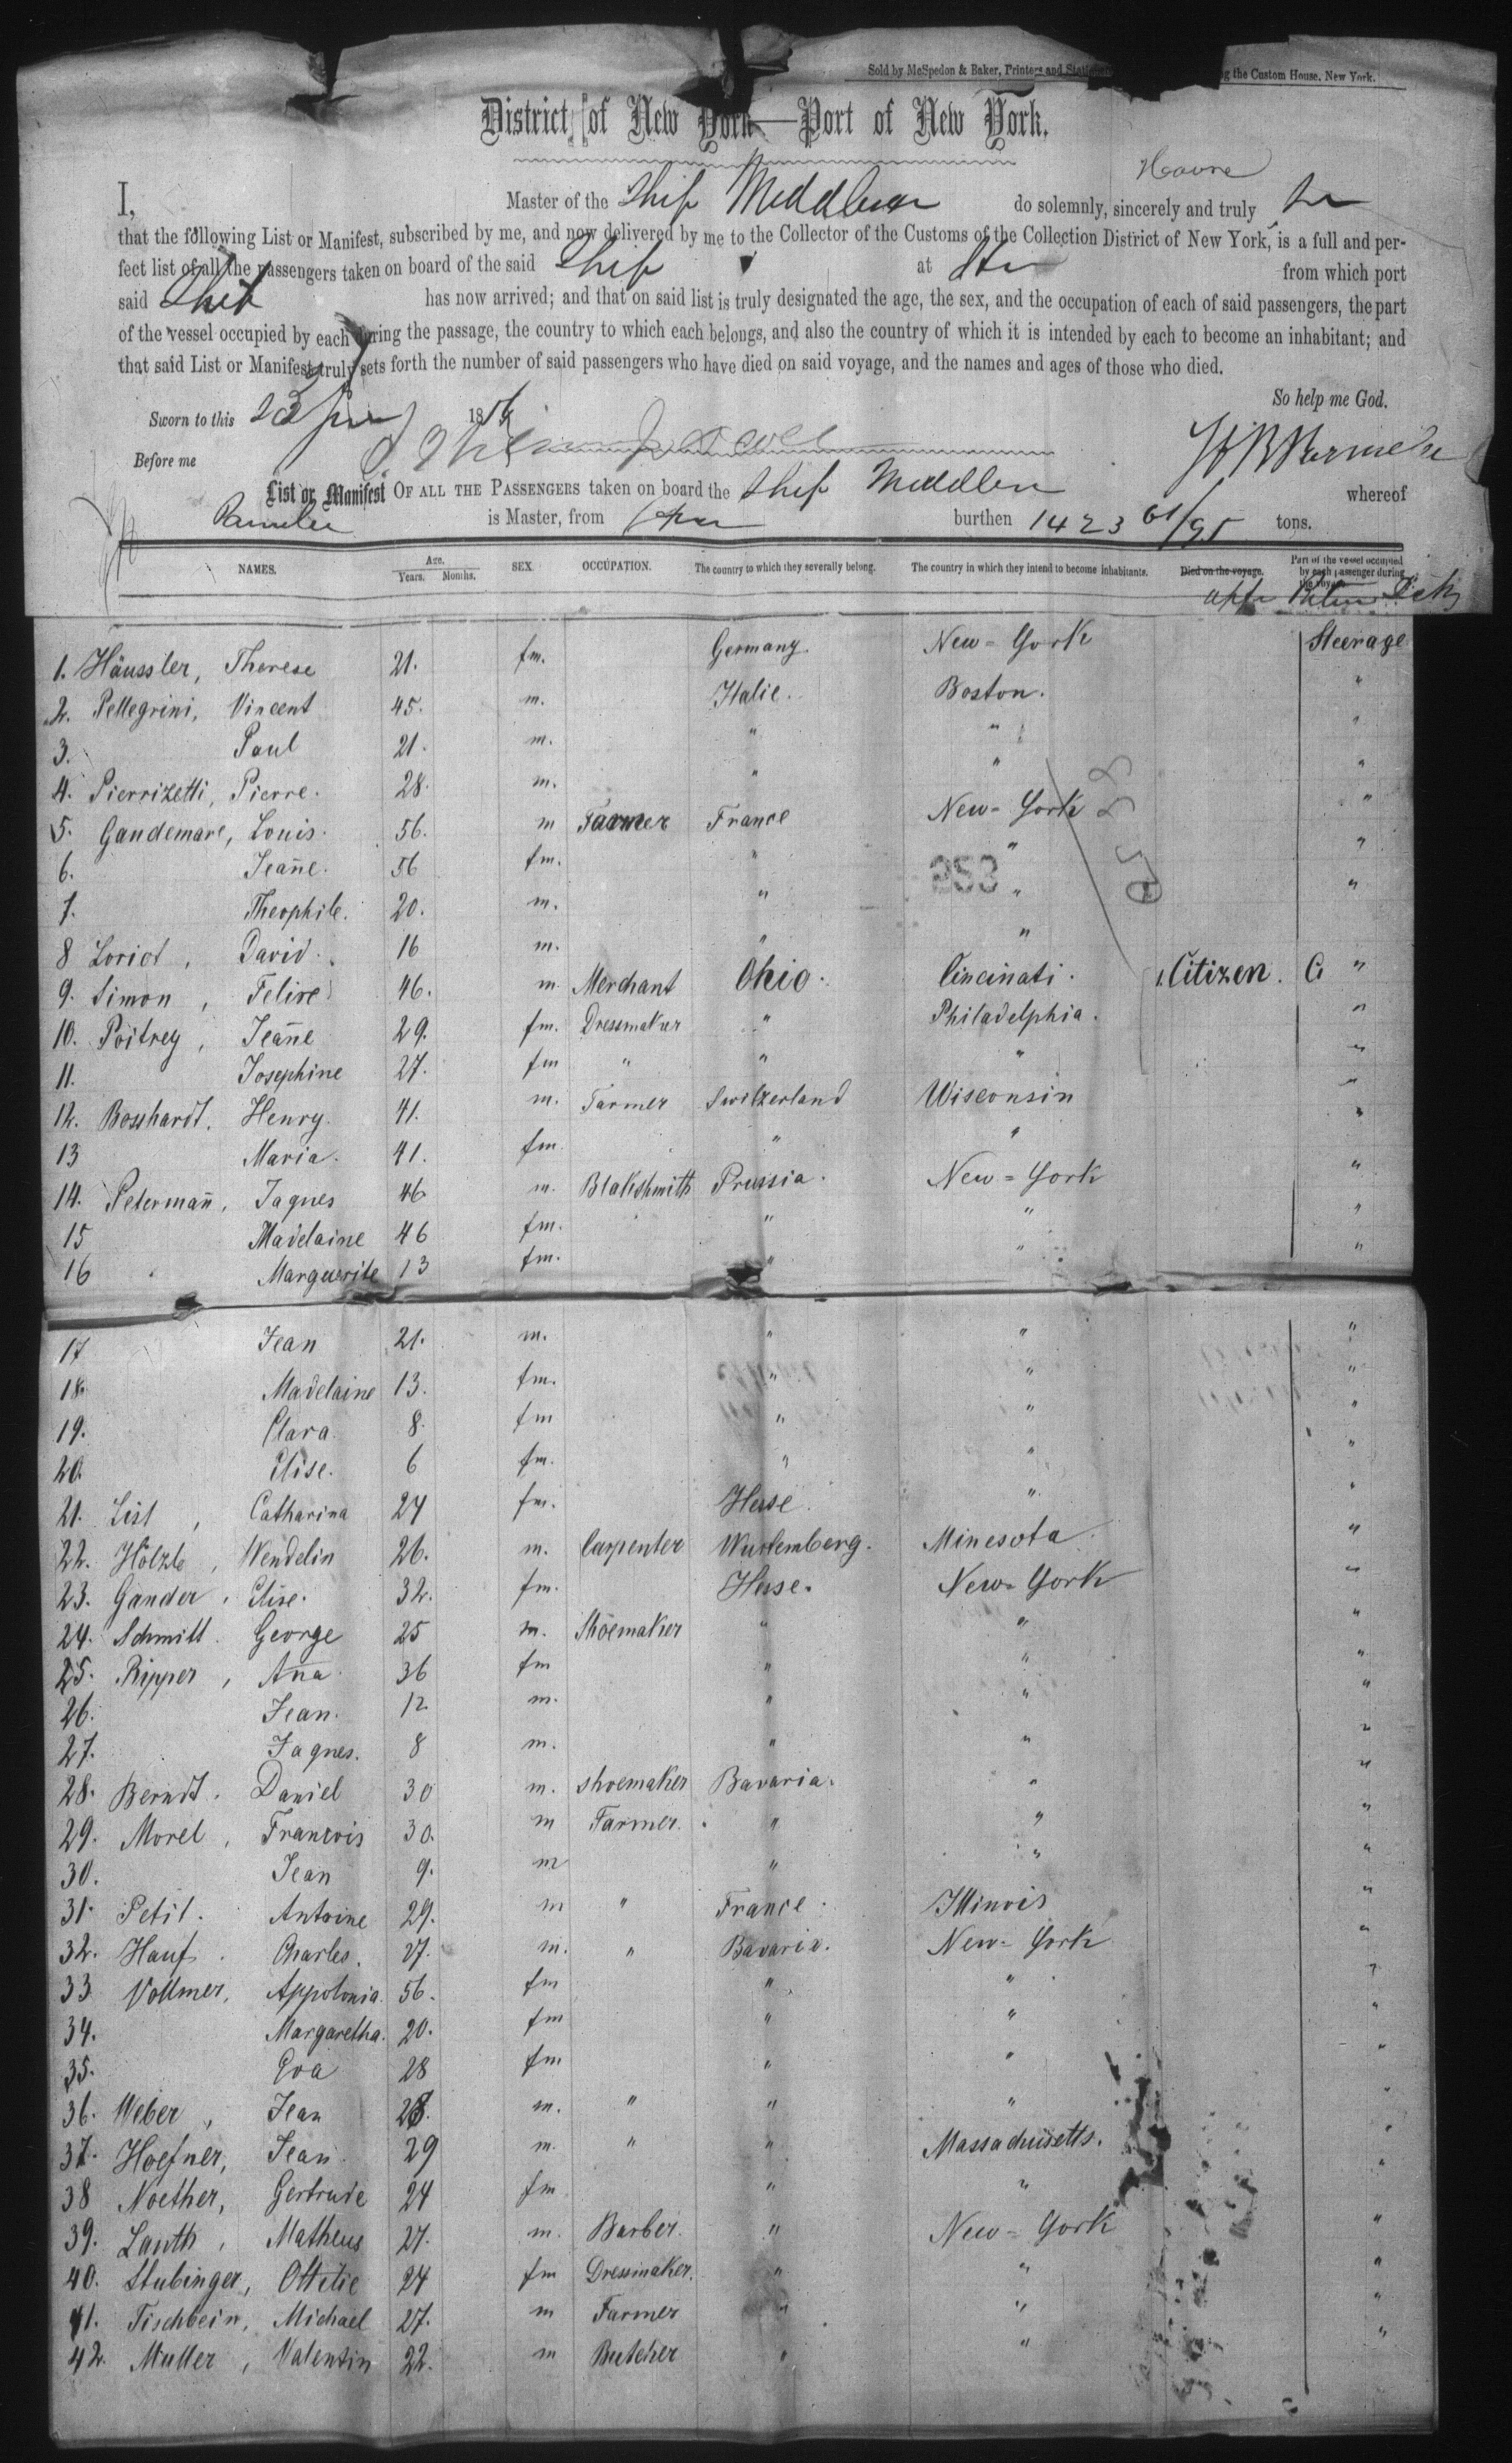 Sold by McSpedon & Baker, Printers and g the Custom House, New York.
District of New York—Port of New York.
Havre
I, Master of the Ship do solemnly, sincerely and truly
that the following List or Manifest, subscribed by me, and now delivered by me to the Collector of the Customs of the Collection District of New York, is a full and per-
fect list of all the passengers taken on board of the said Ship at from which port
said Ship has now arrived; and that on said list is truly designated the age, the sex, and the occupation of each of said passengers, the part
of the vessel occupied by each during the passage, the country to which each belongs, and also the country of which it is intended by each to become an inhabitant; and
that said List or Manifest truly sets forth the number of said passengers who have died on said voyage, and the names and ages of those who died.
So help me God.
Sworn to this 23 18
Before me
List or Manifest OF ALL THE PASSENGERS taken on board the Ship whereof
is Master, from burthen 1423 61/95 tons.
NAMES. Age. Years. Months. SEX OCCUPATION. The country to which they severally belong. The country in which they intend to become inhabitants. Died on the voyage. Part of the vessel occupied by each passenger during the voyage
1. Häussler, Therese 21. fm. Germany. New-York Steerage
2. Pellegrini, Vincent 45. m. Italie. Boston. "
3. Paul 21. m. " " "
4. Pierrizetti, Pierre. 28. m. " " "
5. Gaudemare, Louis. 56. m Farmer France New-York "
6. Jeañe. 56 fm. " " "
253
7. Theophile. 20. m. " " "
8 Loriot, David. 16 m. " "
9. Simon, Felire 46. m Merchant Ohio. Cincinati. Citizen. C "
10. Poitrey, Jeañe 29. fm. Dressmaker " Philadelphia. "
11. Josephine 27. fm " " " "
12. Bosshardt. Henry. 41. m. Farmer Switzerland Wisconsin "
13 Maria. 41. fm. " " "
14. Petermañ, Jaques 46 m. Blakshmith Prussia. New=York "
15 Madelaine 46 fm. " " "
16 Marguerite 13 fm. " " "
17 Jean 21. m. " " "
18. Madelaine 13. fm. " " "
19. Clara. 8. fm " " "
20. Elise. 6 fm. " " "
21. List, Catharina 24 fm. Hesse. " "
22. Hölzle, Wendelin 26. m. Carpenter Wurtemberg. Minesota. "
23. Gander, Elise. 32. fm. Hesse. New=York "
24. Schmitt. George 25 m. Shoemaker " " "
25. Ripper, Aña. 36 fm " " "
26. Jean. 12 m. " " "
27. Jaques. 8 m. " " "
28. Berndt. Daniel 30 m. shoemaker Bavaria. " "
29. Morel, Franzois 30. m Farmer. " " "
30. Jean 9. m " " "
31. Petit. Antoine 29. m " France. Illinois "
32. Hauf. Charles. 27. m. " Bavaria. New-York "
33 Vollmer, Appolonia. 56. fm " " "
34. Margaretha. 20. fm " " "
35. Eva 28 fm " " "
36. Weber, Jean 28. m. " " " "
37. Hoefner, Jean. 29 m. " " Massachusetts. "
38 Noether, Gertrude 24 fm " " "
39. Lauth, Matheus 27. m. Barber. " New=York "
40. Stubinger, Ottilie 24 fm Dressmaker. " " "
41. Tischbein, Michael 27. m Farmer " " "
42. Muller, Valentin 22. m Butcher " " "